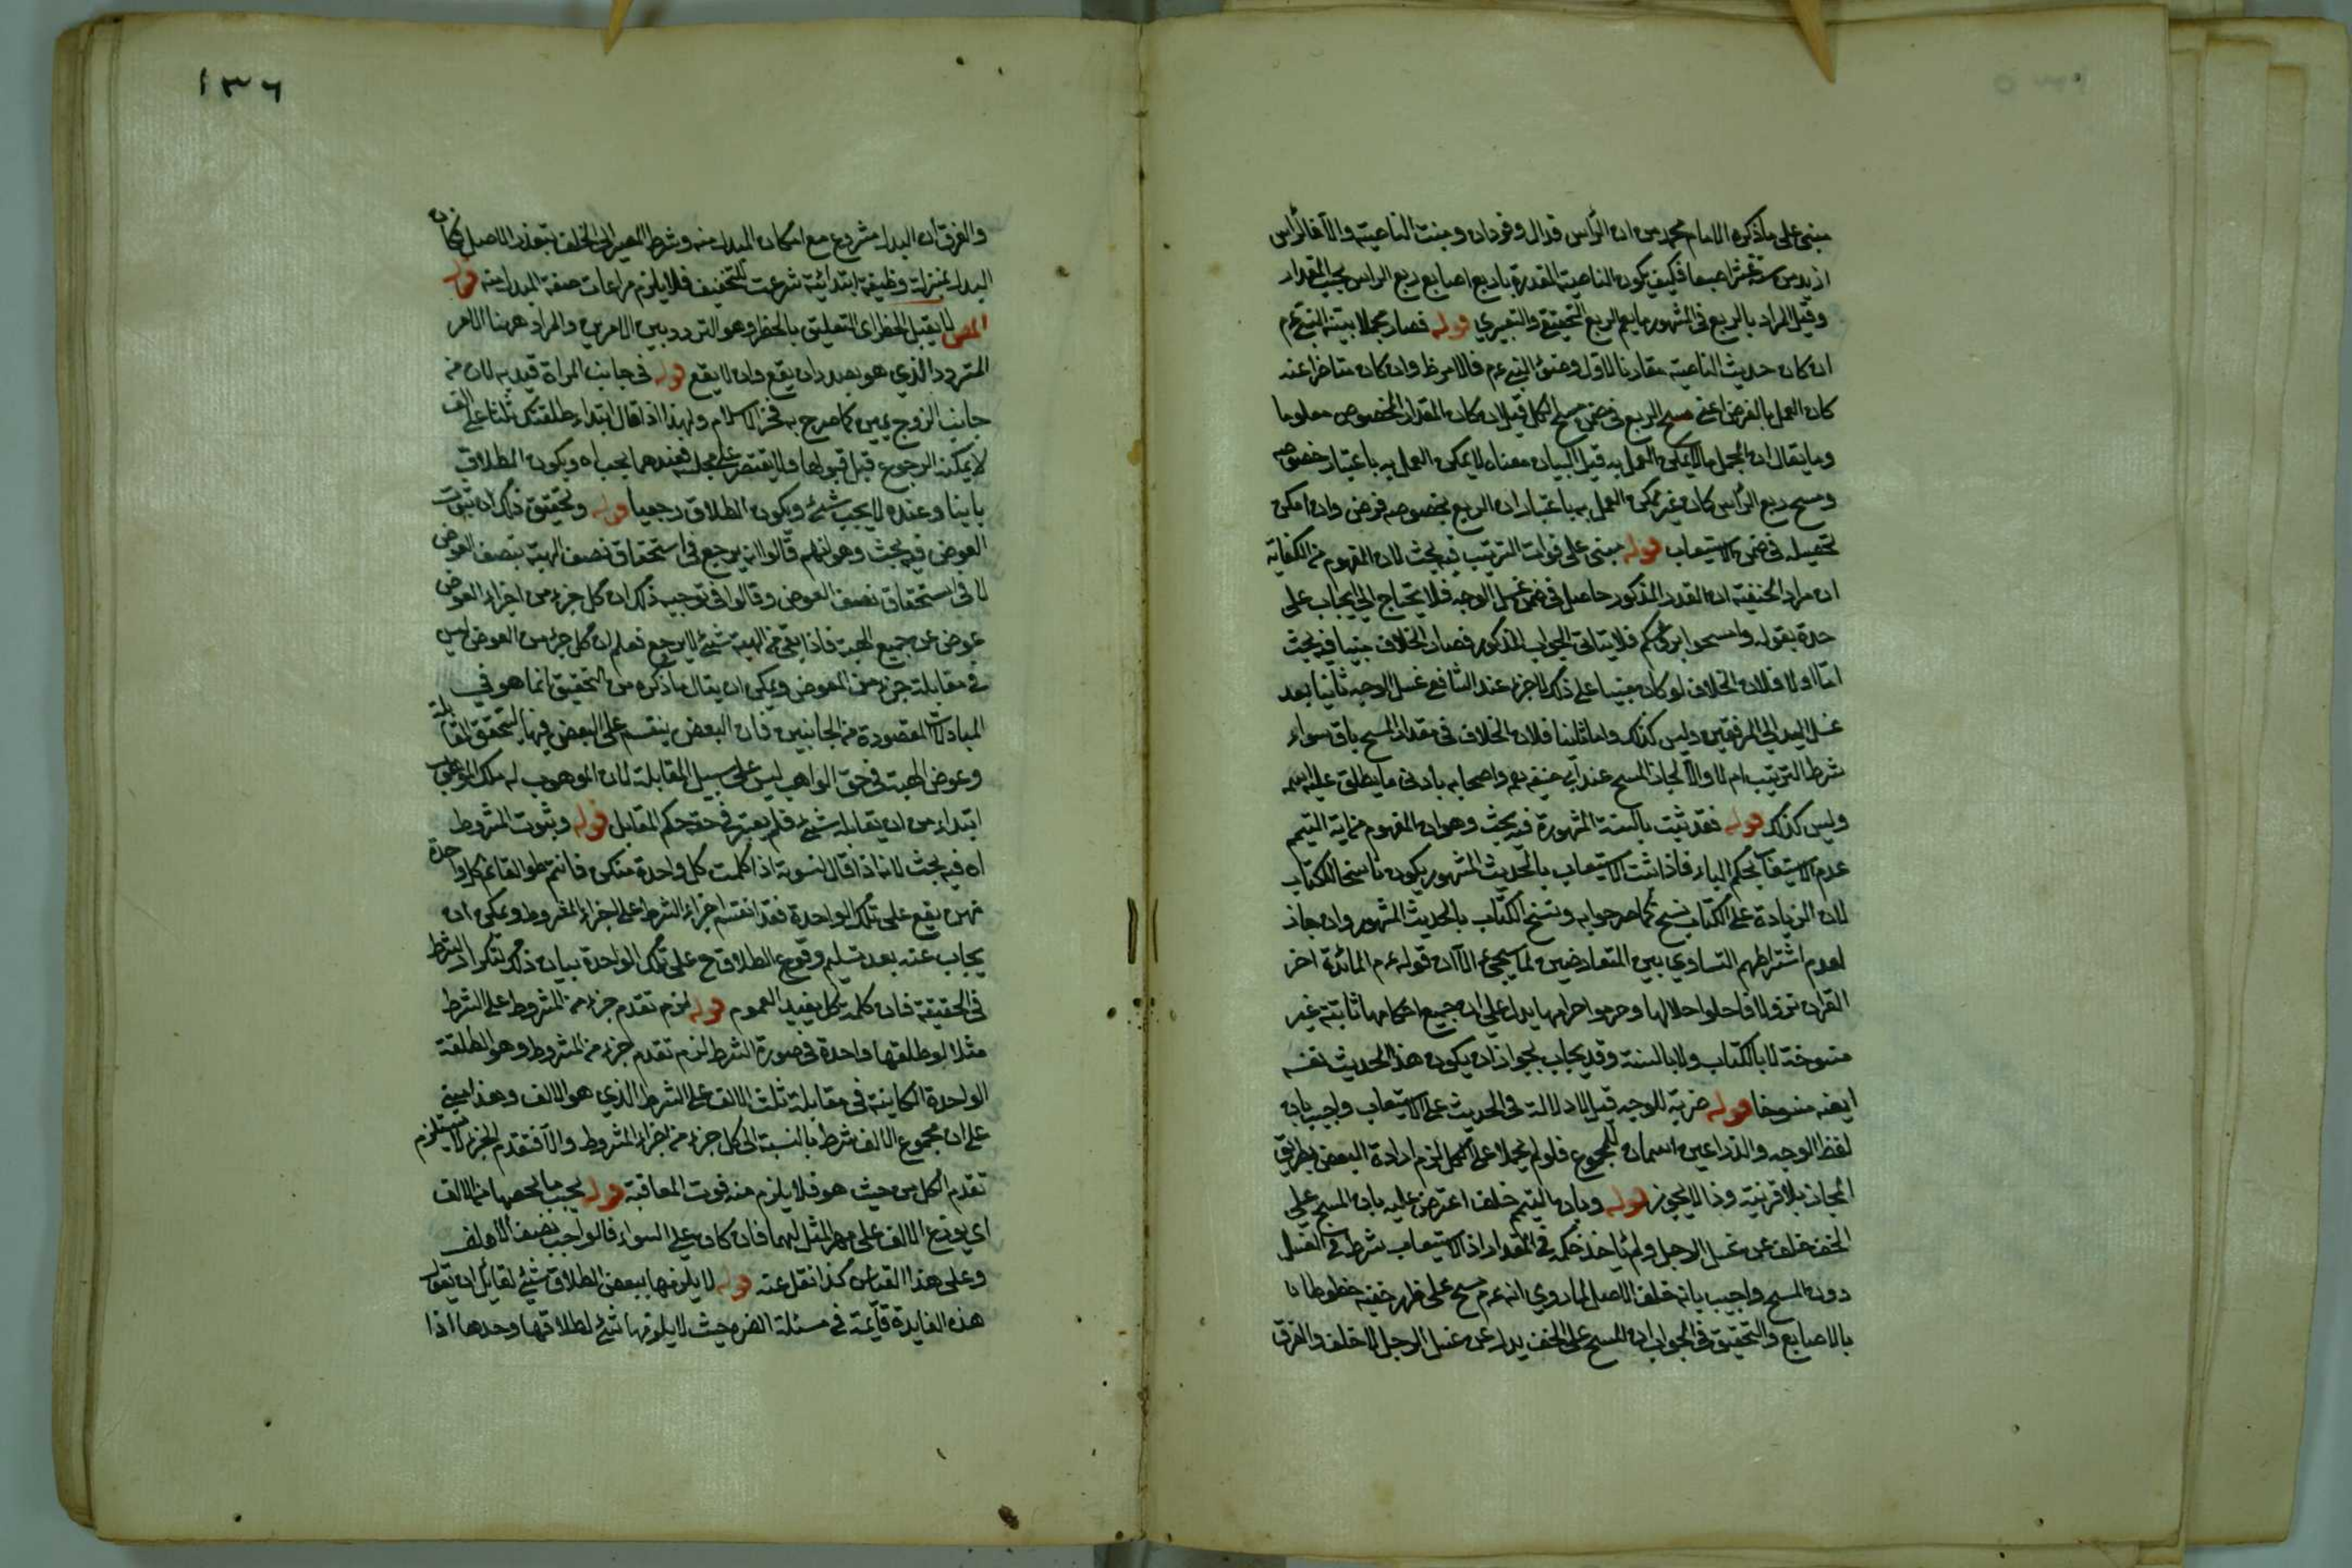 مبنى على ما ذكره الامام محمد من ان الراس قذال وفودان ومنبت الناصية والا فالراس
ازيد من ستة عشر اصبعا فكيف يكون الناصية المقدرة باربع اصابع ربع الراس بحسب المقدار
وقيل المراد بالربع فى المشهور ما يعم الربع التحقيقي والتعبيري قوله فصار مجملا بينه النبي عم
ان كان حديث الناصية مقارنا لاول وضوء النبي عم فالامر ظ وان كان متاخرا عنه
كان العمل بالفرض اعني مسح الربع فى ضمن مسح الكل قيل ان كان المقدار المخصوص معلوما
وما يقال ان المجمل ما لا يمكن العمل به قبل البيان معناه لا يمكن العمل به باعتبار خصوصه
ومسح ربع الراس كان غير ممكن العمل به باعتبار ان الربع بخصوصه فرض وان امكن
تحصيله فى ضمن الاستيعاب قوله مبنى على فوات الترتيب فيه بحث لان المفهوم من الكفاية
ان مراد الحنفية ان القدر المذكور حاصل فى ضمن غسل الوجه فلا يحتاج الى ايجاب على
حدة بقوله وامسحوا برؤسكم فلا يتاتى الجواب المذكور فصار الخلاف مبنيا فيه بحث
اما اولا فلان الخلاف لو كان مبنيا على ذلك لاجزء عند الشافعى غسل الوجه ثانيا بعد
غسل اليد الى المرفقين وليس كذلك واما ثانيا فلان الخلاف فى مقدار المسح باق سواء
شرط الترتيب ام لا والا لجاز المسح عند ابى حنيفه رح واصحابه بادنى ما يطلق عليه اسمه
وليس كذلك قوله فقد ثبت بالسنة المشهورة فيه بحث وهو ان المفهوم من اية التيمم
عدم الاستيعاب بحكم الباء فاذا ثبت الاستيعاب بالحديث المشهور يكون ناسخا للكتاب
لان الزيادة على الكتاب نسخ كما صرحوا به ونسخ الكتاب بالحديث المشهور وان جاز
لعدم اشتراطهم التساوي بين المتعارضين لما سيجئ الا ان قوله عم المائدة اخر
القران نزولا فاحلوا حلالها وحرموا حرامها يدل على ان جميع احكامها ثابتة غير
منسوخة لا بالكتاب ولا بالسنة وقد يجاب بجواز ان يكون هذا الحديث نفسه
ايضه منسوخا قوله ضربة للوجه قيل لا دلالة فى الحديث على الاستيعاب واجيب بان
لفظ الوجه والذراعين اسمان للمجموع فلو لم يحملا على الكل لزم ارادة البعض بطريق
المجاز بلا قرينة وذا لا يجوز قوله وبان التيمم خلف اعترض عليه بان المسح على
الخف خلف عن غسل الرجل ولم ياخذ حكمه فى المقدار اذ الاستيعاب شرط فى الغسل
دون المسح واجيب بانه خلف الاصل لما روي انه عم مسح على ظهر خفيه خطوطا
بالاصابع والتحقيق فى الجواب ان المسح على الخف بدل عن غسل الرجل لا خلف والفرق
١٣٦
والفرق ان البدل مشروع مع امكان المبدل منه وشرط المصير الى الخلف تعذر الاصل فكان
البدل بمنزلة وظيفة ابتدائية شرعت للتخفيف فلا يلزم مراعات صفة المبدل منه قوله
لا يقبل الخطر اى التعليق بالخطر وهو التردد بين الامرين والمراد ههنا الامر
المتردد الذي هو بصدد ان يقع وان لا يقع قوله فى جانب المراة قيد به لان من
جانب الزوج يمين كما صرح به فخر الاسلام ولهذا اذا قال ابتداء طلقتك ثلثا على الف
لا يمكنه الرجوع قبل قبولها ولا يقتصر على مجلسه فعندهما يجب اه ويكون الطلاق
باينا وعنده لا يجب شئ ويكون الطلاق رجعيا قوله وتحقيق ذلك ان ثبوت
العوض فيه بحث وهو انهم قالوا انه يرجع فى استحقاق نصف الهبة بنصف العوض
لا فى استحقاق نصف العوض وقالوا فى توجيه ذلك ان كل جزء من اجزاء العوض
عوض عن جميع الهبة فاذا بقى من الهبة شئ لا يرجع فعلم ان كل جزء من العوض ليس
فى مقابلة جزء من المعوض ويمكن ان يقال ما ذكره من التحقيق انما هو في
المبادلات المقصودة من الجانبين فان البعض ينقسم على البعض فيها لتحقق المقابلة
وعوض الهبة فى حق الواهب ليس على سبيل المقابلة لان الموهوب له ملك الموهوب
ابتداء من ان يقابله شئ فلم يعتبر فى حقه حكم المقابل قوله وثبوت المشروط
اه فيه بحث لانه اذا قال لنسوته اذا كلمت كل واحدة منكن فانتم طوالق فايتهن كل واحدة
منهن يقع على تلك الواحدة فقد انقسم اجزاء الشرط على اجزاء المشروط ويمكن ان
يجاب عنه بعد تسليم وقوع الطلاق ح على تلك الواحدة بيان ذلك لتكرار الشرط
فى الحقيقة فان كلمة كل يفيد العموم قوله لزم تقدم جزء من المشروط على الشرط
مثلا لو طلقها واحدة فى صورة الشرط لزم تقدم جزء من المشروط وهو الطلقة
الواحدة الكاينة فى مقابلة ثلث الالف على الشرط الذي هو الالف وهذا مبنى
على ان مجموع الالف شرط بالنسبة الى كل جزء من اجزاء المشروط والا فتقدم الجزء لا يستلزم
تقدم الكل من حيث هو فلا يلزم منه فوت المعاقبة قوله يجب ما يخصها من الالف
اي يوزع الالف على مهر المثل لهما فان كان على السواء فالواجب نصف الالف
وعلى هذا القياس كذا نقل عنه قوله لا يلزمها ببعض الطلاق شئ لقائل ان يقول
هذه الفايدة قائمة فى مسئلة الضرة حيث لا يلزمها شئ لطلاقها وحدها اذا